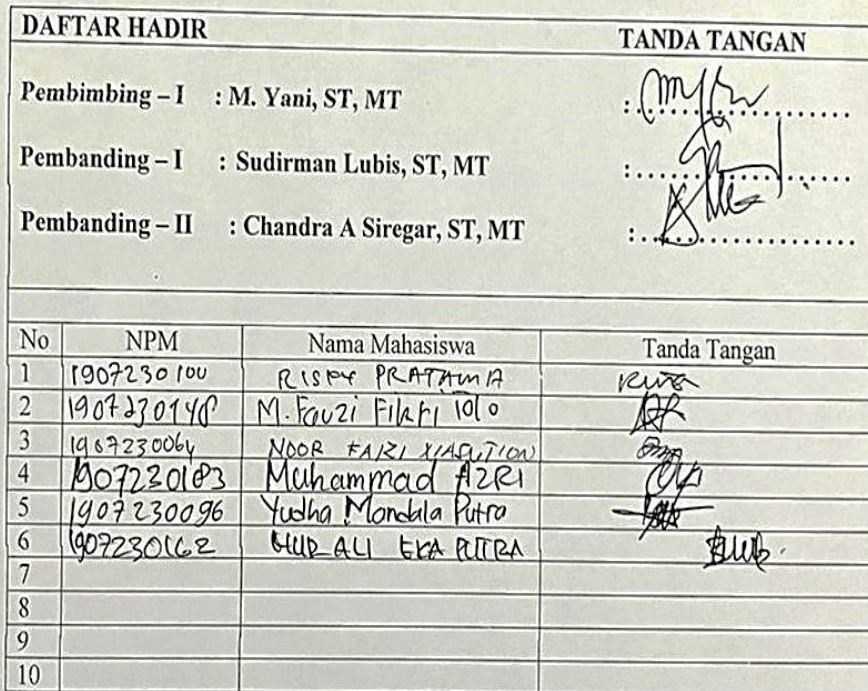 DAFTAR HADIR TANDA TANGAN
Pembimbing – I : M. Yani, ST, MT :
Pembanding – I : Sudirman Lubis, ST, MT :
Pembanding – II : Chandra A Siregar, ST, MT :
No NPM Nama Mahasiswa Tanda Tangan
1 1907230100 PRATAMA
2 1907230148 M. Fauzi Fikri
3 1907230064 NOOR FAIZI
4 1907230183 Muhammad AZRI
5 1907230096 Yudha Mandala Putra
6 1907230162 ALI EKA PUTRA
7
8
9
10